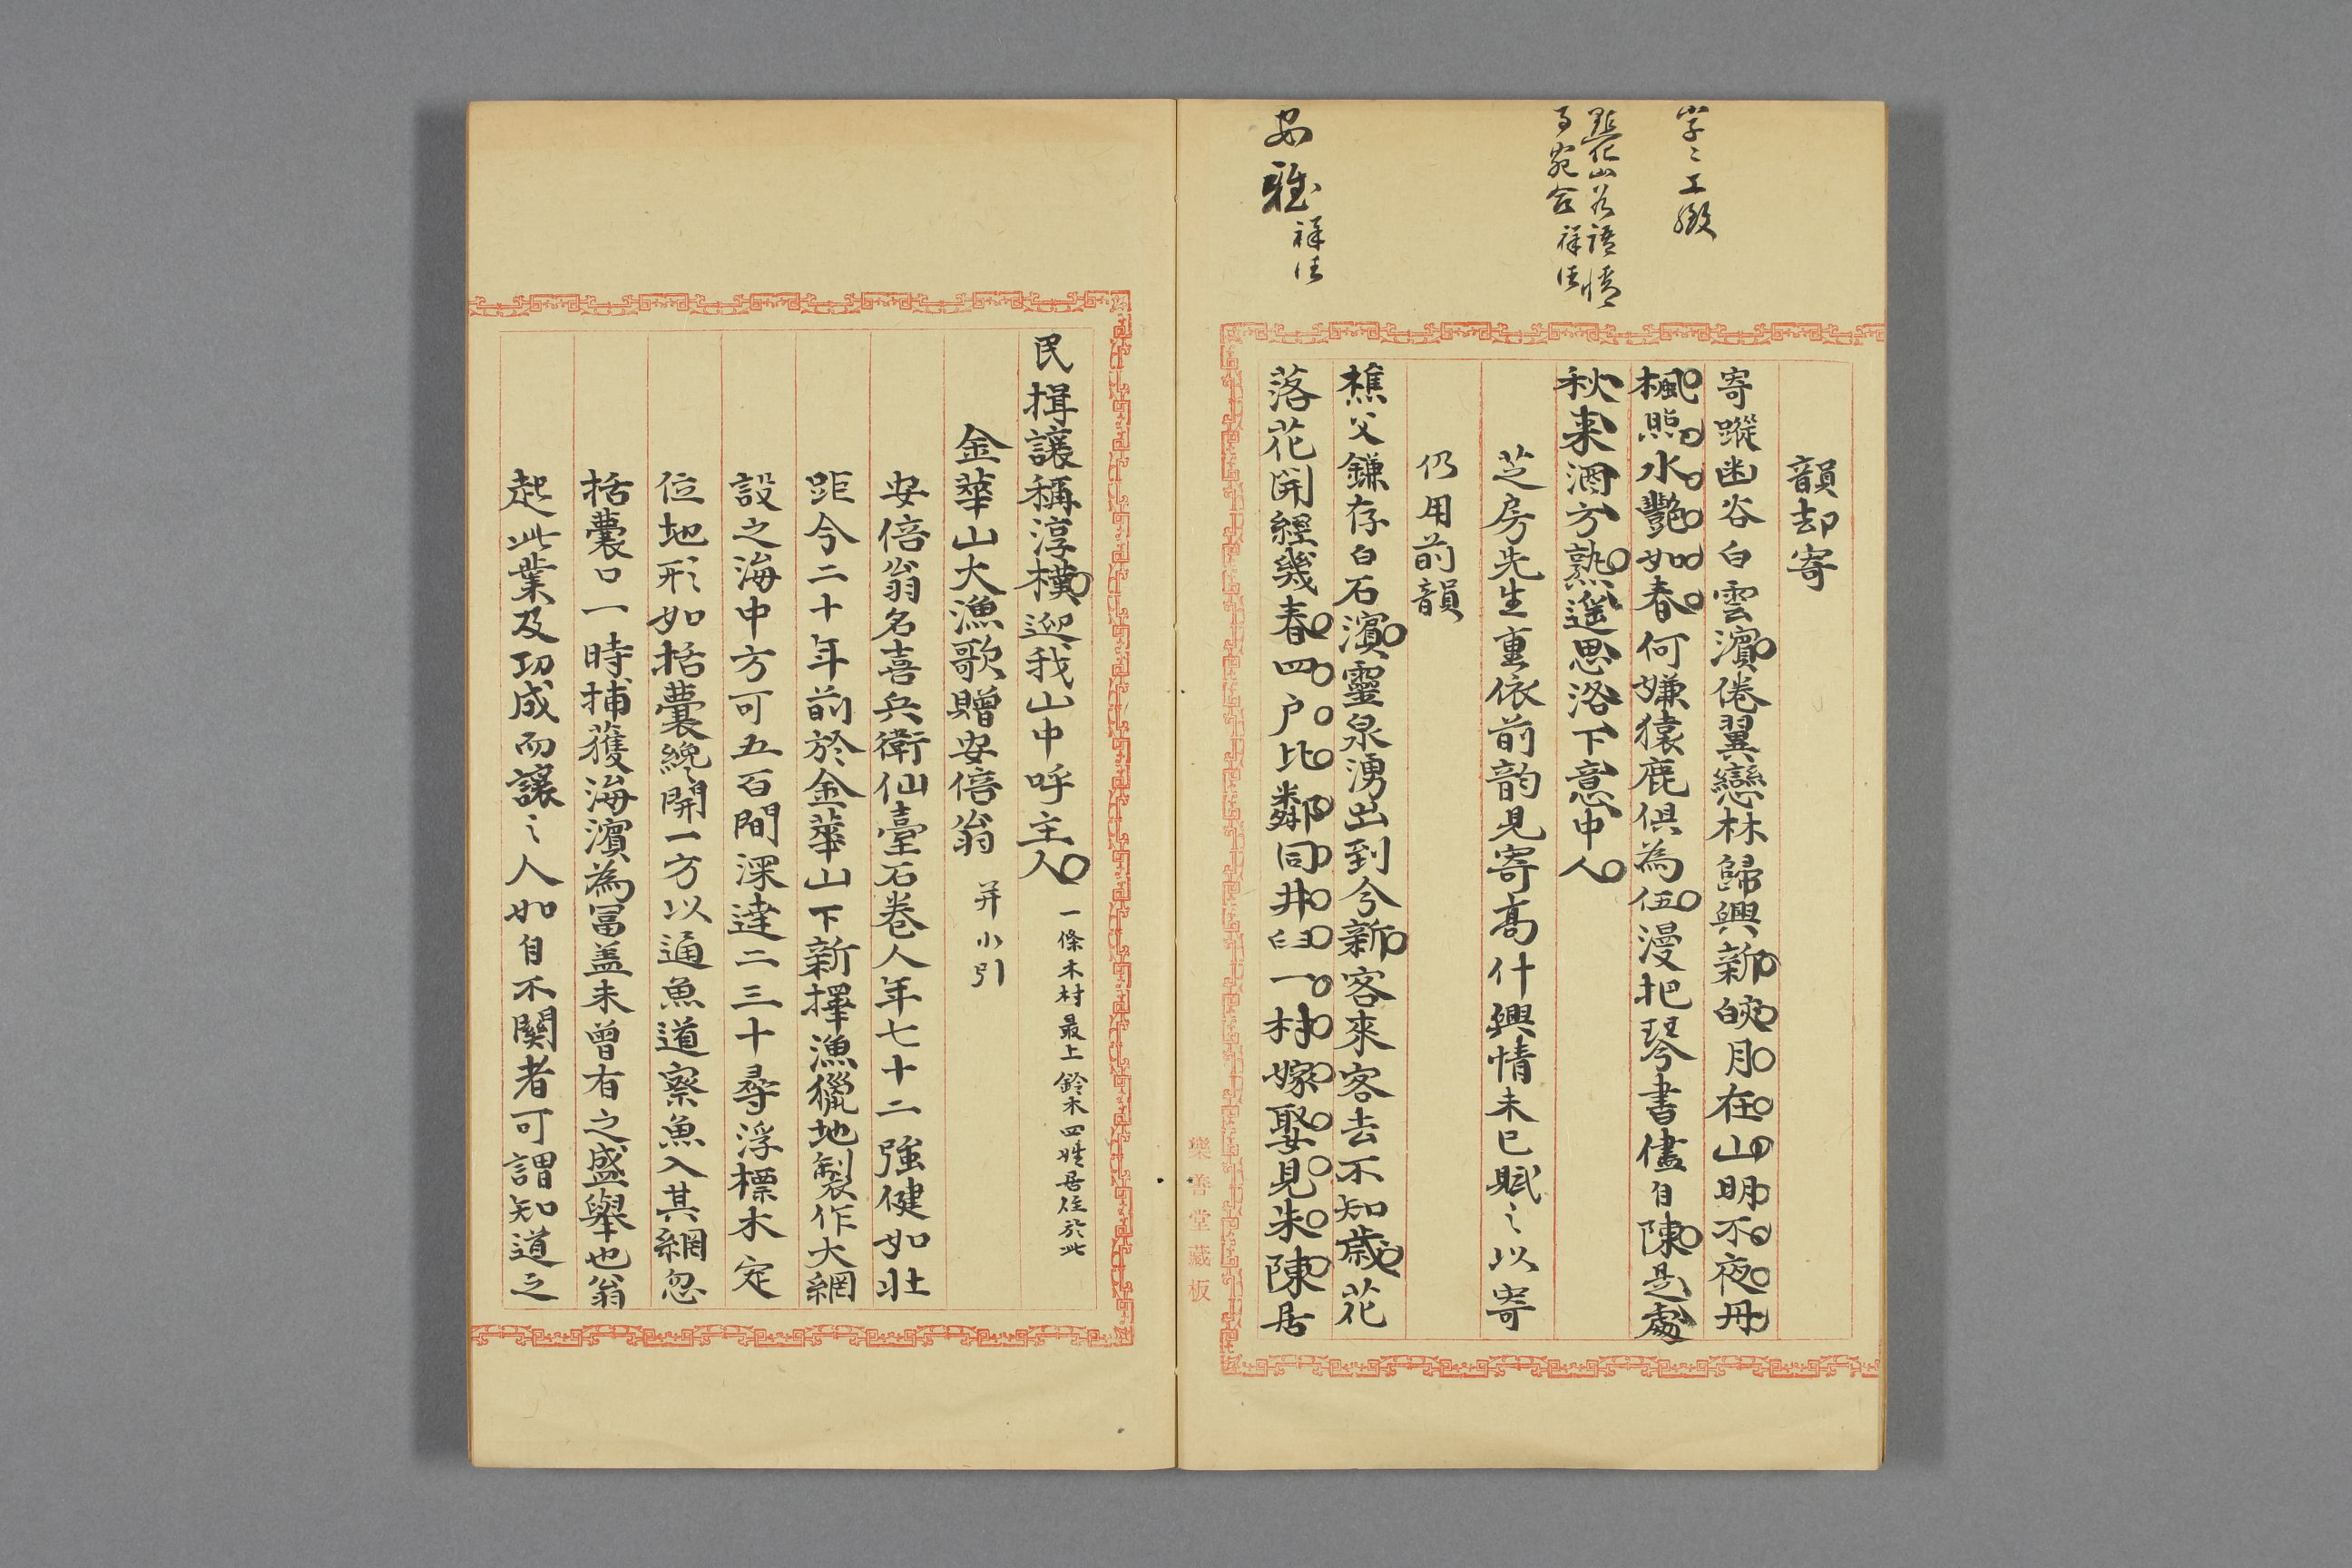 字〻工緻
點化山谷語情
事宛合 祥注
安雅 祥注
韻却寄
寄蹤幽谷白雲濱倦翼戀林歸興新皎月在山明不夜丹
楓照水豔如春何嫌猿鹿俱為伍漫把琴書儘自陳是處
秋来酒方熟遥思洛下意中人
芝房先生重依前韵見寄高什興情未已賦之以寄
仍用前韻
樵父鎌存白石濱靈泉湧出到今新客來客去不知歳花
落花開經幾春四戸比鄰同井臼一村嫁娶見朱陳居
樂善堂藏板
民揖讓稱淳樸迎我山中呼主人 一條木村最上鈴木四姓居住於此
金華山大漁歌贈安倍翁 并小引
安倍翁名喜兵衛仙臺石巻人年七十二強健如壯
距今二十年前於金華山下新擇漁獵地製作大網
設之海中方可五百間深達二三十尋浮標木定
位地形如括囊纔開一方以通魚道察魚入其網忽
括囊口一時捕獲海濱為冨盖未曾有之盛舉也翁
起此業及功成而讓之人如自不関者可謂知道之